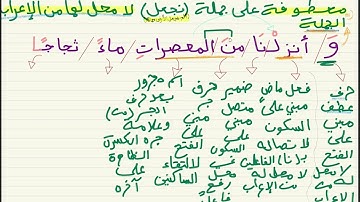 معطوفة على جملة (نجعل) لا محل لها من الإعراب
الجملة
و / أنزلنا من المعصرات / ماءً / ثجاجًا
حرف فعل ماض ضمير حرف اسم مجرور
عطف مبني على متصل جر بعد حرف
مبني السكون مبني مبني الجر (من)
على لاتصاله على على وعلامة
الفتح بنا الفاعلين السكون الفتح جره الكسرة
لا محل لا محل له في لالتقاء الظاهرة
له من من الإعراب محل الساكنين على
الإعراب رفع آخره
فاعل